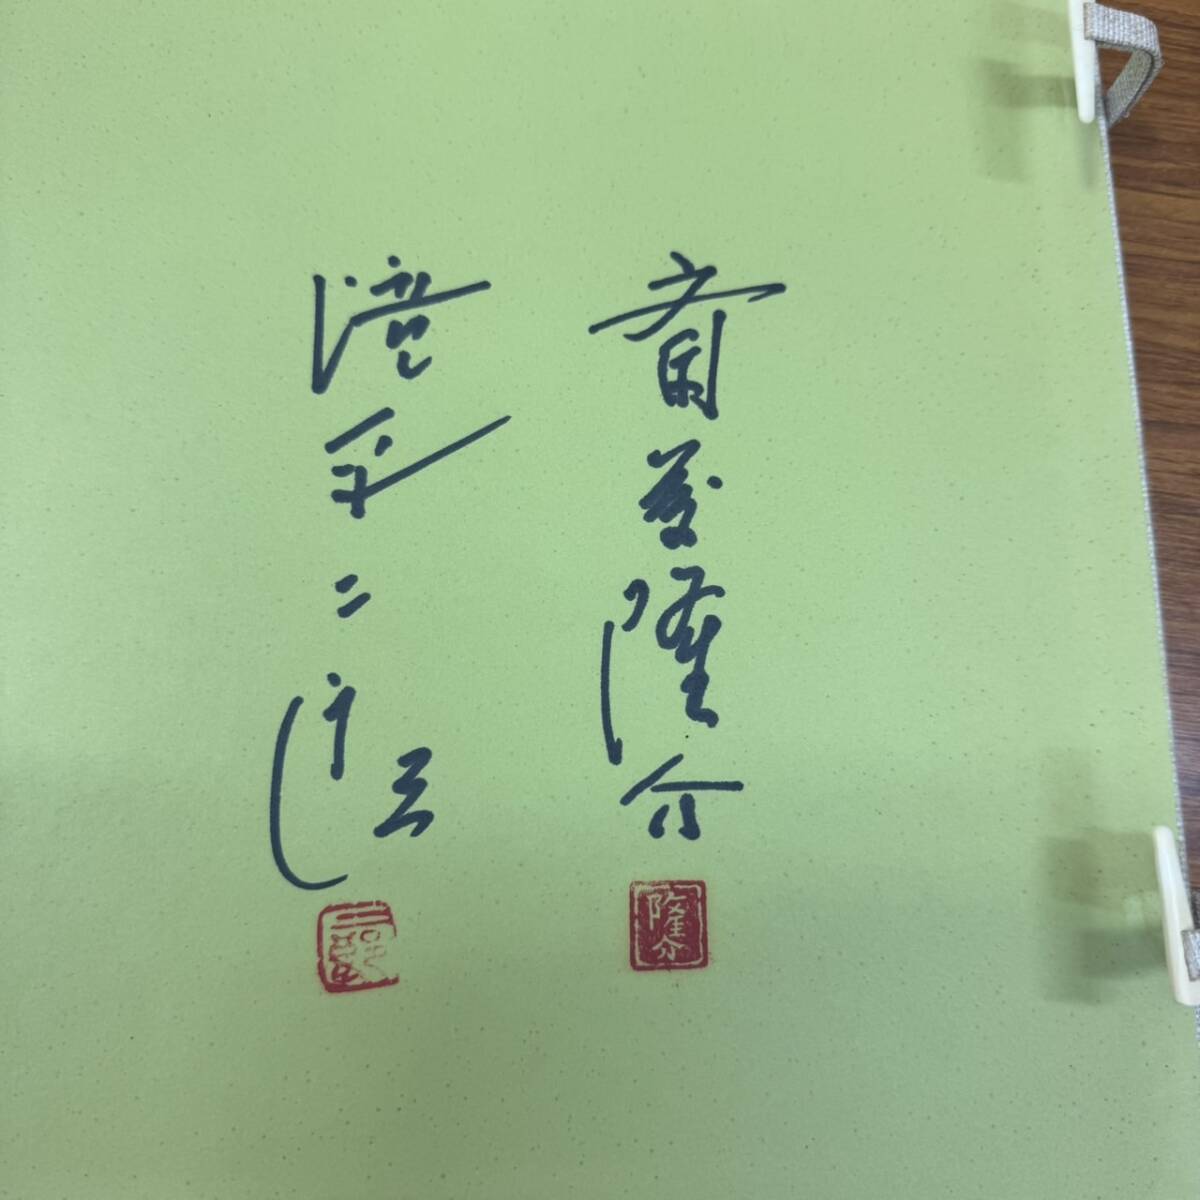 斎藤隆介
隆介
滝平二郎
二郎